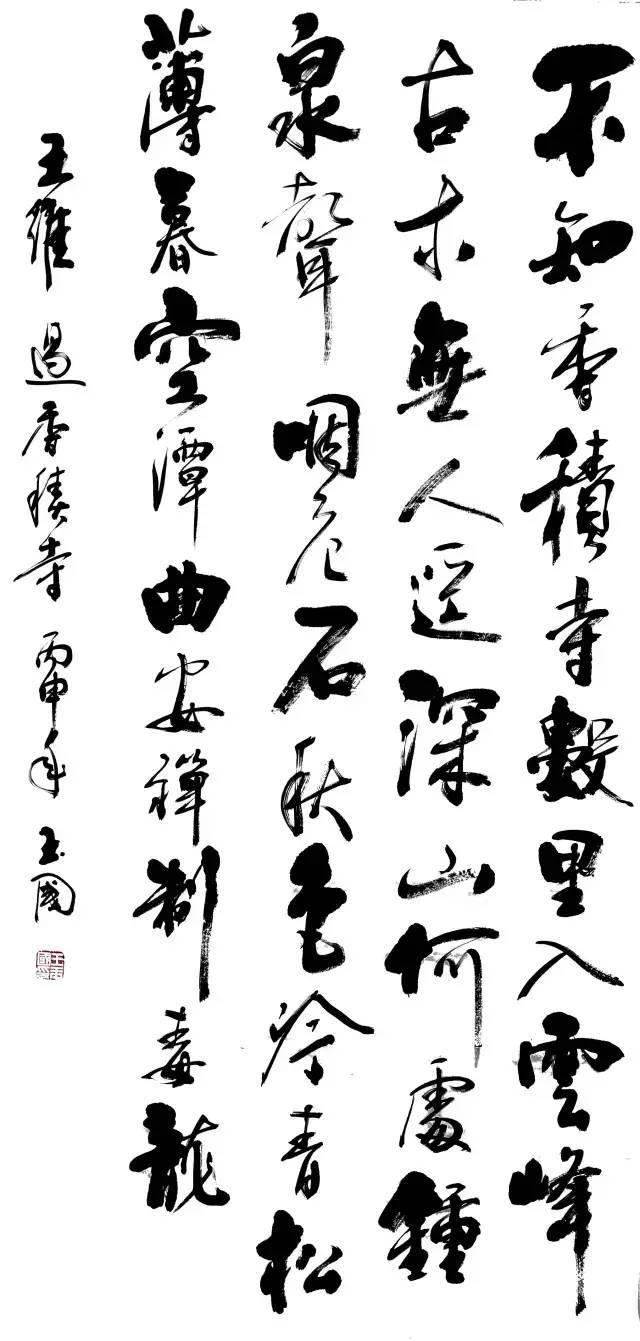 不知香積寺數里入雲峰
古木無人逕深山何處鍾
泉聲咽危石秋色冷青松
薄暮空潭曲安禪制毒龍
王維 過香積寺 丙申年 玉國